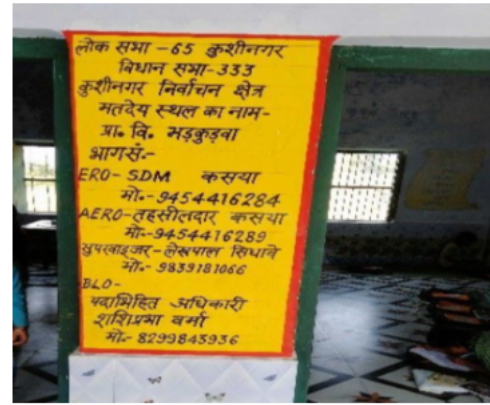 लोक सभा -65 कुशीनगर
विधान सभा-333
कुशीनगर निर्वाचन क्षेत्र
मतदेय स्थल का नाम-
प्रा. वि. मड़कुड़वा
भागसं.-
ERO- SDM कसया
मो.- 9454416284
AERO-तहसीलदार कसया
मो.-9454416289
सुपरवाइजर-लेखपाल सिधावे
मो.- 9839181066
BLO-
पदाभिहित अधिकारी
शशिप्रभा वर्मा
मो.- 8299843936